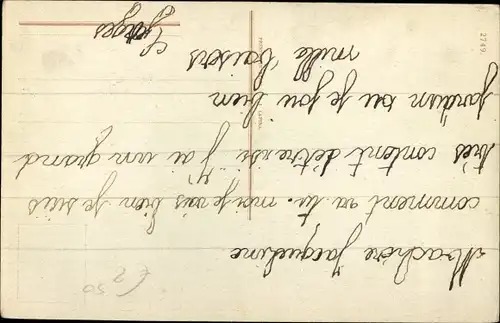 Ma chère Jacqueline
comment va tu. moi je vais bien je suis
très content d'être ici j'ai un grand
Jardin ou je jou bien
mille baisers
Georges
2749.
€ 2,50